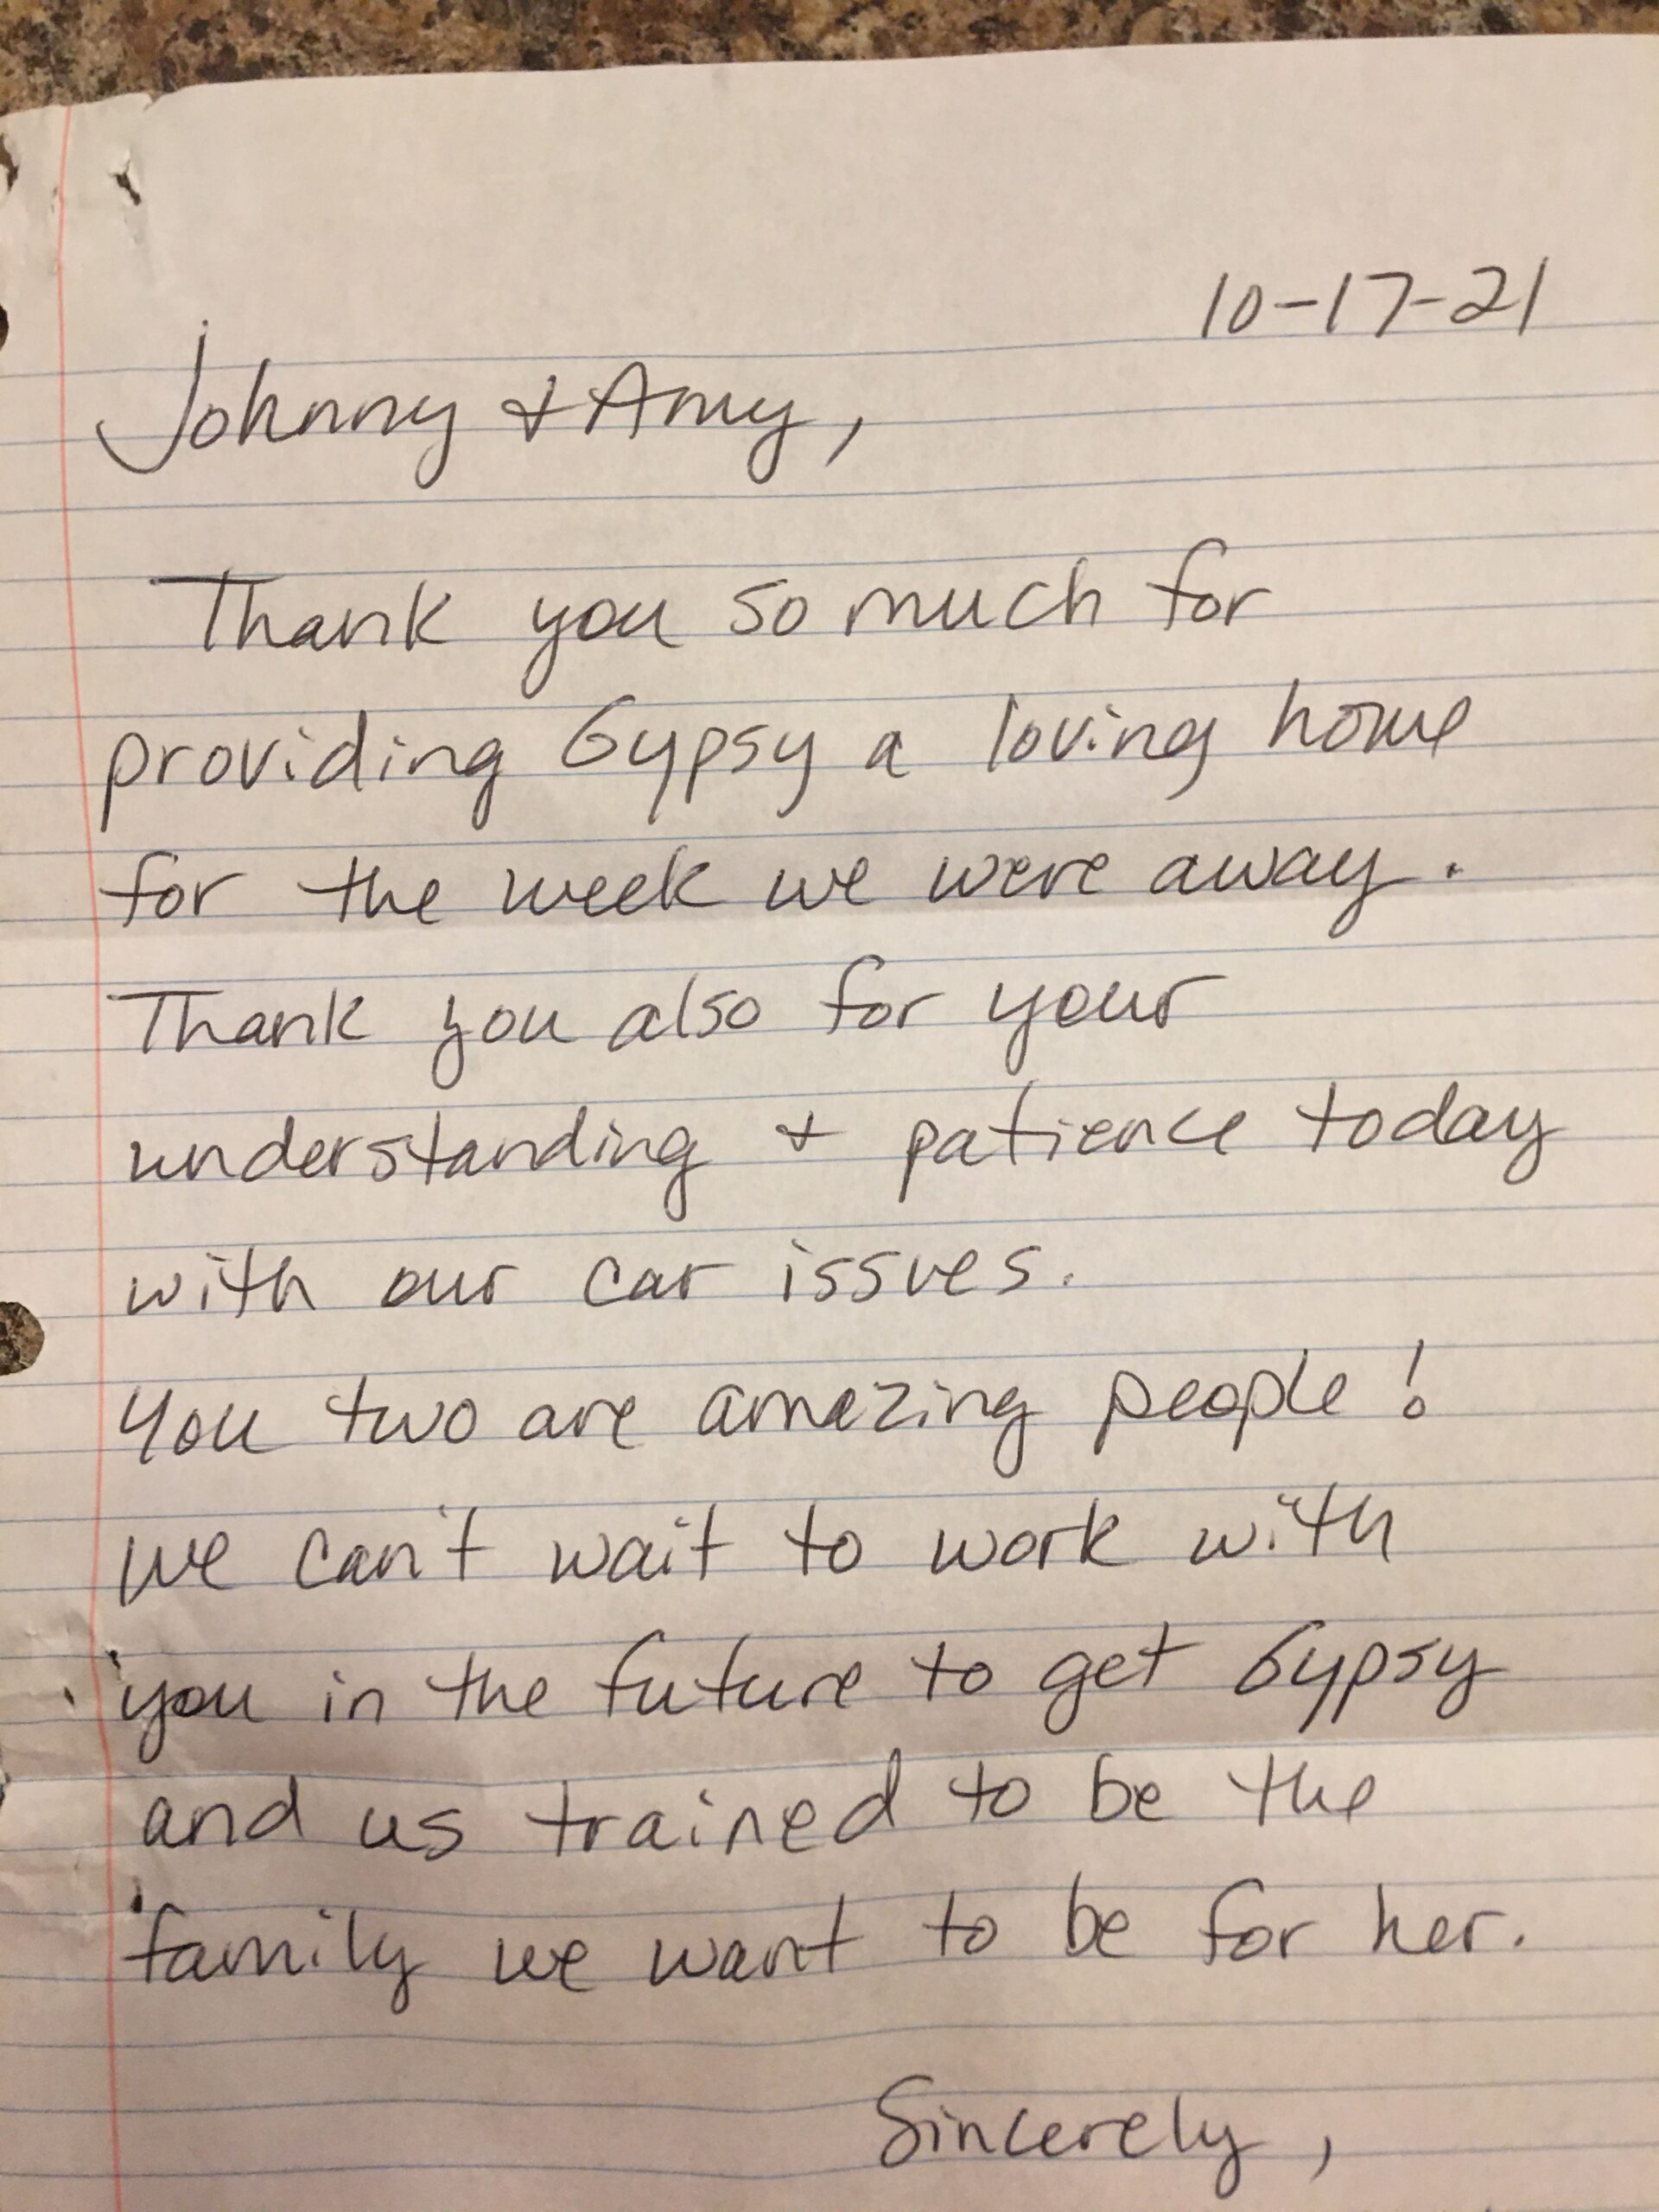 10-17-21
Johnny & Amy,
Thank you so much for
providing Gypsy a loving home
for the week we were away.
Thank you also for your
understanding & patience today
with our car issues.
You two are amazing people!
We can't wait to work with
you in the future to get Gypsy
and us trained to be the
family we want to be for her.
Sincerely,